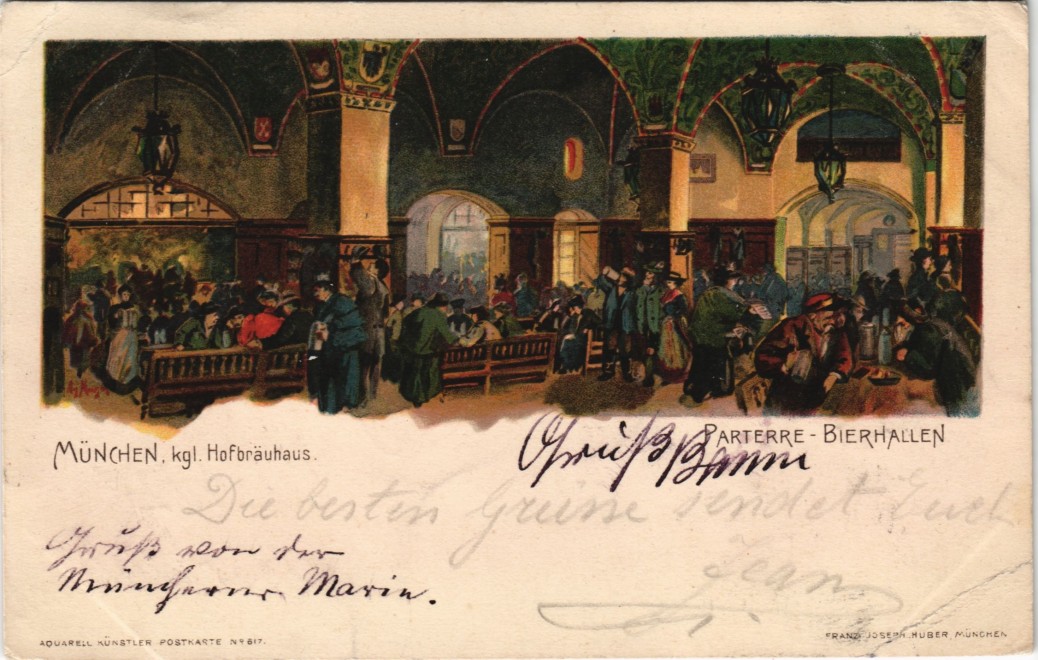 MÜNCHEN, kgl. Hofbräuhaus.
PARTERRE - BIERHALLEN
Gruß
Die besten Grüsse sendet Euch
Jean
Gruß von der
Münchener Marie.
AQUARELL KÜNSTLER POSTKARTE No 617.
FRANZ JOSEPH HUBER MÜNCHEN